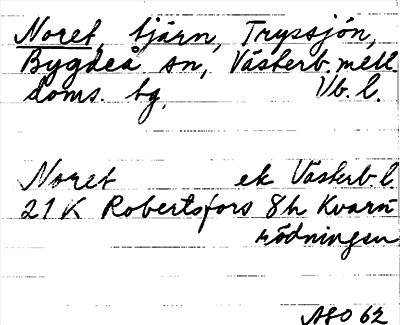 Noret, tjärn, Tryssjön,
Bygdeå sn, Västerb. mell.
doms. tg, Vb. l.
Noret ek Västerb. l.
21 K Robertsfors 8h Kvarn
rödningen
ASO 62